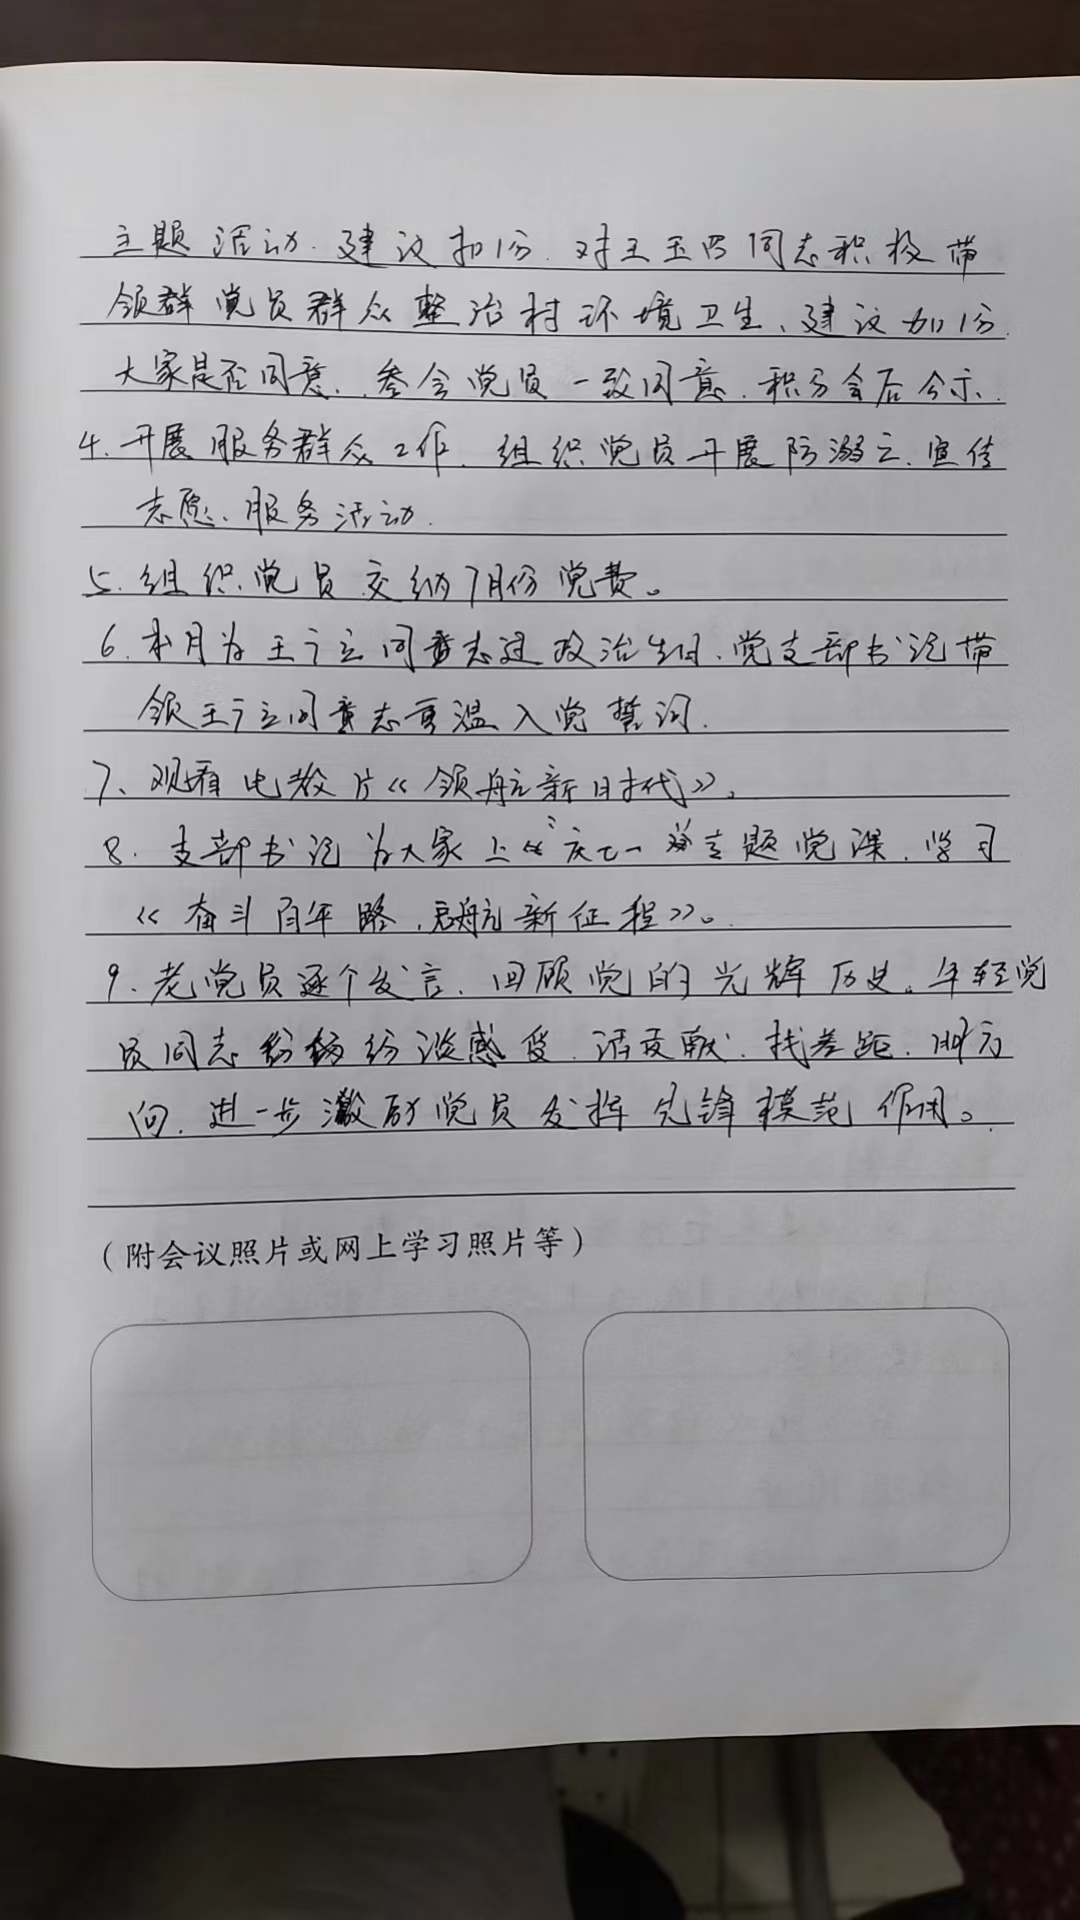 主题活动.建议扣1分.对王玉四同志积极带
领群党员群众整治村环境卫生、建议加1分.
大家是否同意.参会党员一致同意.积分会后公示.
4.开展服务群众工作.组织党员开展防溺亡、宣传
志愿、服务活动.
5.组织党员交纳7月份党费。
6.本月为王广立同志过政治生日.党支部书记带
领王广立同志重温入党誓词.
7、观看电教片《领航新时代》。
8.支部书记为大家上“庆七一”专题党课.学习
《奋斗百年路,启航新征程》。
9.老党员逐个发言.回顾党的光辉历史。年轻党
员同志纷纷谈感受.话贡献.找差距.明方
向.进一步激励党员发挥先锋模范作用。
(附会议照片或网上学习照片等)